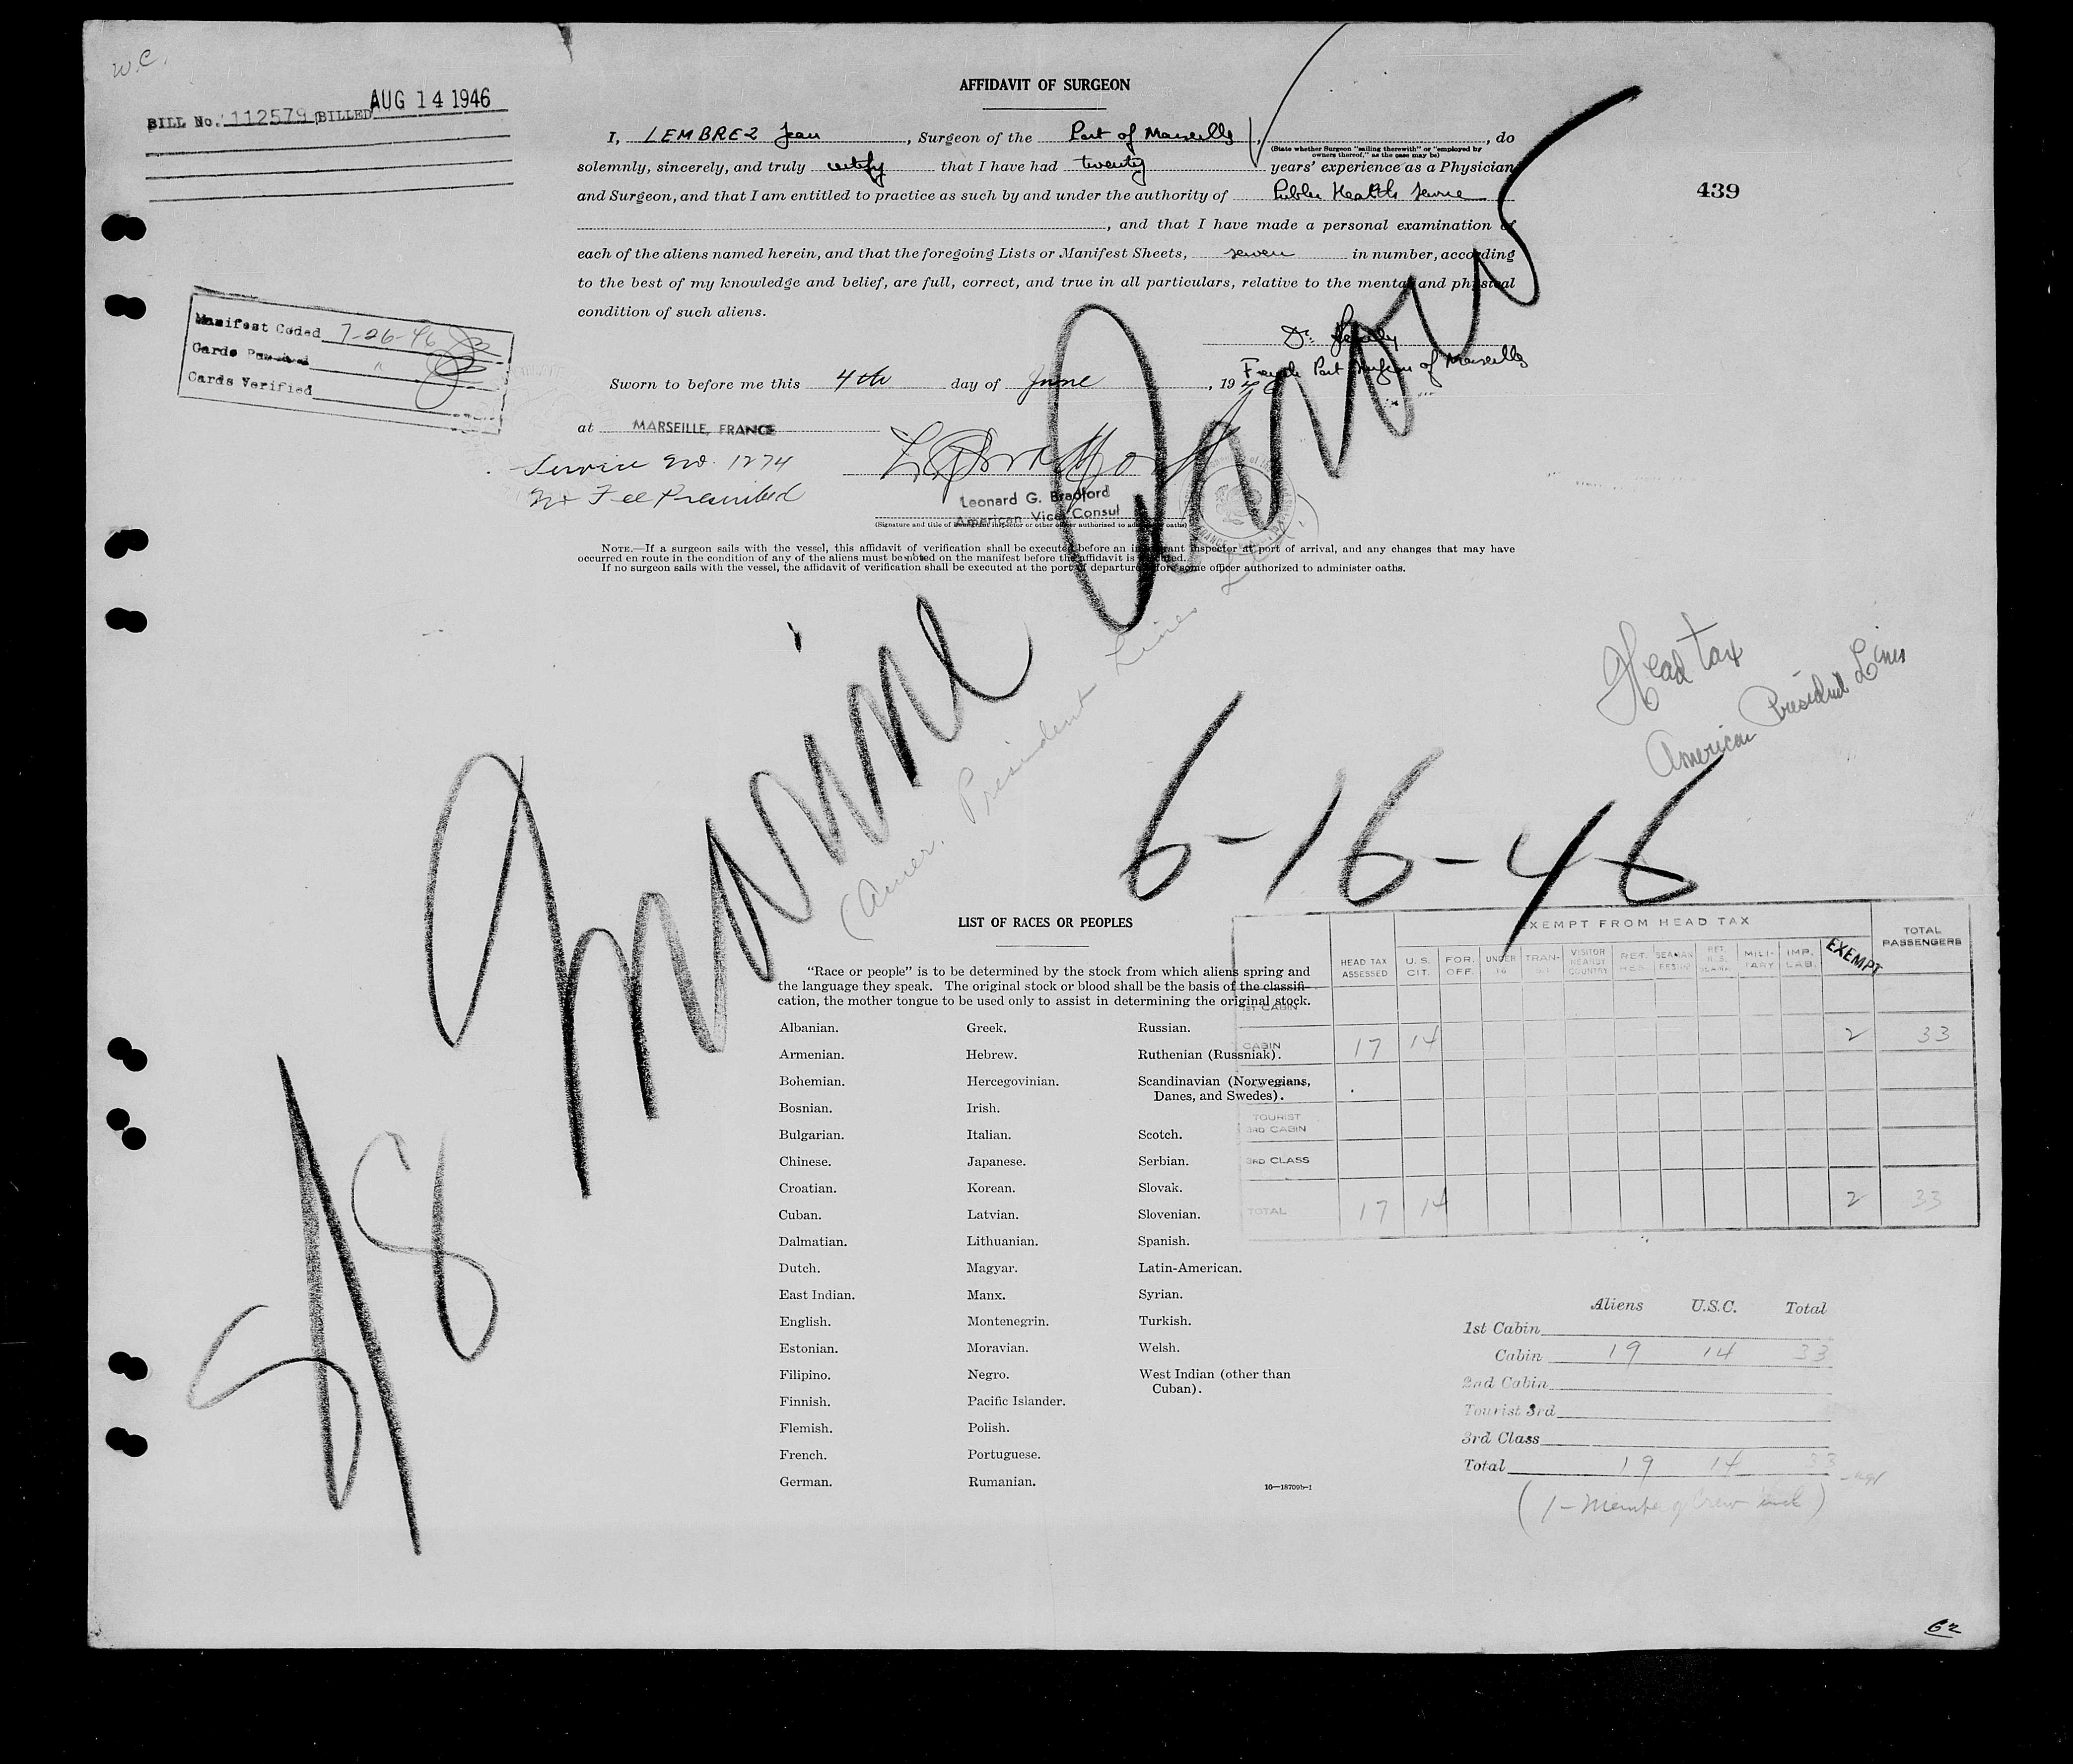 W.C.
BILL No. 112579 BILLED AUG 14 1946
AFFIDAVIT OF SURGEON
I, LEMBREZ Jean, Surgeon of the Port of Marseille, , do
(State whether Surgeon "sailing therewith" or "employed by owners thereof," as the case may be)
solemnly, sincerely, and truly certify that I have had twenty years' experience as a Physician
and Surgeon, and that I am entitled to practice as such by and under the authority of Public Health Service
, and that I have made a personal examination of
each of the aliens named herein, and that the foregoing Lists or Manifest Sheets, seven in number, according
to the best of my knowledge and belief, are full, correct, and true in all particulars, relative to the mental and physical
condition of such aliens.
439
Manifest Coded 7-26-46
Cards Punched "
Cards Verified
Dr.
French Port Surgeon of Marseille
Sworn to before me this 4th day of June, 19
at MARSEILLE, FRANCE
Service No. 1274
No Fee Prescribed
Leonard G. Bradford
American Vice Consul
(Signature and title of immigrant inspector or other officer authorized to administer oaths)
NOTE.—If a surgeon sails with the vessel, this affidavit of verification shall be executed before an immigrant inspector at port of arrival, and any changes that may have
occurred en route in the condition of any of the aliens must be noted on the manifest before the affidavit is executed.
If no surgeon sails with the vessel, the affidavit of verification shall be executed at the port of departure before some officer authorized to administer oaths.
S/S Marine
(Amer. President Lines
6-16-46
Head tax
American President Lines
LIST OF RACES OR PEOPLES
"Race or people" is to be determined by the stock from which aliens spring and
the language they speak. The original stock or blood shall be the basis of the classifi-
cation, the mother tongue to be used only to assist in determining the original stock.
Albanian. Greek. Russian.
Armenian. Hebrew. Ruthenian (Russniak).
Bohemian. Hercegovinian. Scandinavian (Norwegians,
Danes, and Swedes).
Bosnian. Irish.
Bulgarian. Italian. Scotch.
Chinese. Japanese. Serbian.
Croatian. Korean. Slovak.
Cuban. Latvian. Slovenian.
Dalmatian. Lithuanian. Spanish.
Dutch. Magyar. Latin-American.
East Indian. Manx. Syrian.
English. Montenegrin. Turkish.
Estonian. Moravian. Welsh.
Filipino. Negro. West Indian (other than
Cuban).
Finnish. Pacific Islander.
Flemish. Polish.
French. Portuguese.
German. Rumanian.
16—18709b-1
EXEMPT FROM HEAD TAX
HEAD TAX ASSESSED U.S. CIT. FOR. OFF. UNDER 16 TRAN- VISITOR NEARBY COUNTRY RET. RES. SEAMAN RET. U.S. MILI-TARY IMP. LAB. EXEMPT TOTAL PASSENGERS
1ST CABIN
CABIN 17 14 2 33
TOURIST
3RD CABIN
3RD CLASS
TOTAL 17 14 2 33
Aliens U.S.C. Total
1st Cabin
Cabin 19 14 33
2nd Cabin
Tourist 3rd
3rd Class
Total 19 14 33
(1 - Member of Crew incl)
62